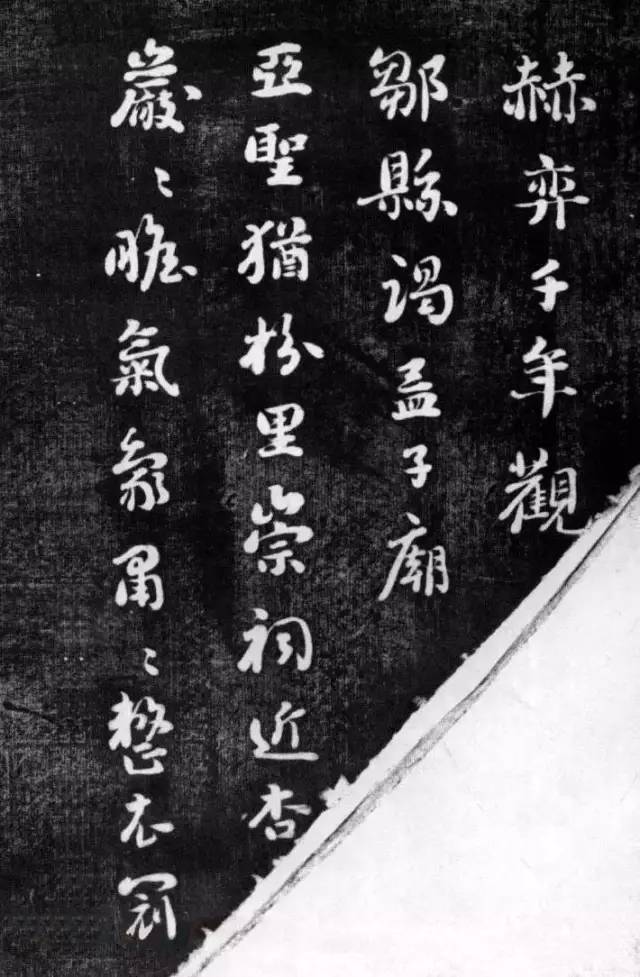 赫奕千年觀
鄒縣謁孟子廟
亞聖猶枌里崇祠近杏
嚴〻瞻氣象肅〻整衣冠